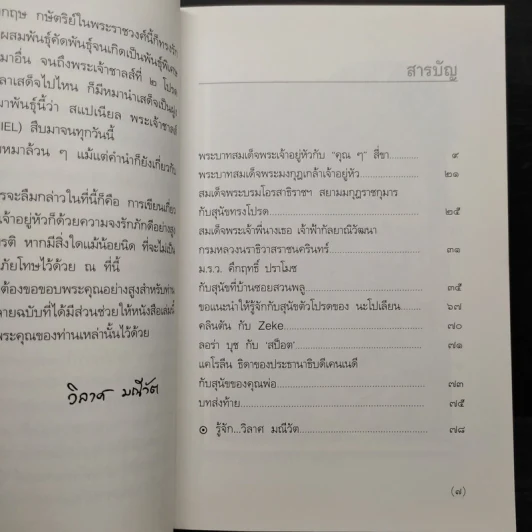 กฤษ กษัตริย์ในพระราชวงศ์นี้ก็ทรง
ผสมพันธุ์คัดพันธุ์จนเกิดเป็นพันธุ์พิเศษ
มาอื่น จนถึงพระเจ้าชาลส์ที่ ๒ โปรด
ลาเสด็จไปไหน ก็มีหมานำเสด็จเป็นฝูง
มาพันธุ์นี้ว่า สแปเนียล พระเจ้าชาลส์
IEL) สืบมาจนทุกวันนี้
หมาล้วน ๆ แม้แต่คำนำก็ยังเกี่ยวกับ
รจะลืมกล่าวในที่นี้ก็คือ การเขียนเกี่ยว
เจ้าอยู่หัวก็ด้วยความจงรักภักดีอย่างสูง
รติ หากมีสิ่งใดแม้น้อยนิด ที่จะไม่เป็น
ภัยโทษไว้ด้วย ณ ที่นี้
ต้องขอขอบพระคุณอย่างสูงสำหรับท่าน
ลายฉบับที่ได้มีส่วนช่วยให้หนังสือเล่มนี้
พระคุณของท่านเหล่านั้นไว้ด้วย
วิลาศ มณีวัต
สารบัญ
พระบาทสมเด็จพระเจ้าอยู่หัวกับ "คุณ ๆ" สี่ขา............ ๙
พระบาทสมเด็จพระมงกุฎเกล้าเจ้าอยู่หัว............ ๒๑
สมเด็จพระบรมโอรสาธิราชฯ สยามมกุฎราชกุมาร
กับสุนัขทรงโปรด............ ๒๕
สมเด็จพระเจ้าพี่นางเธอ เจ้าฟ้ากัลยาณิวัฒนา
กรมหลวงนราธิวาสราชนครินทร์............ ๓๑
ม.ร.ว. คึกฤทธิ์ ปราโมช
กับสุนัขที่บ้านซอยสวนพลู............ ๓๕
ขอแนะนำให้รู้จักกับสุนัขตัวโปรดของ นะโปเลียน............ ๖๗
คลินตัน กับ Zeke............ ๗๐
ลอร่า บุช กับ 'สป็อต'............ ๗๑
แคโรลีน ธิดาของประธานาธิบดีเคนเนดี
กับสุนัขของคุณพ่อ............ ๗๓
บทส่งท้าย............ ๗๕
⊙ รู้จัก...วิลาศ มณีวัต............ ๗๘
(๗)